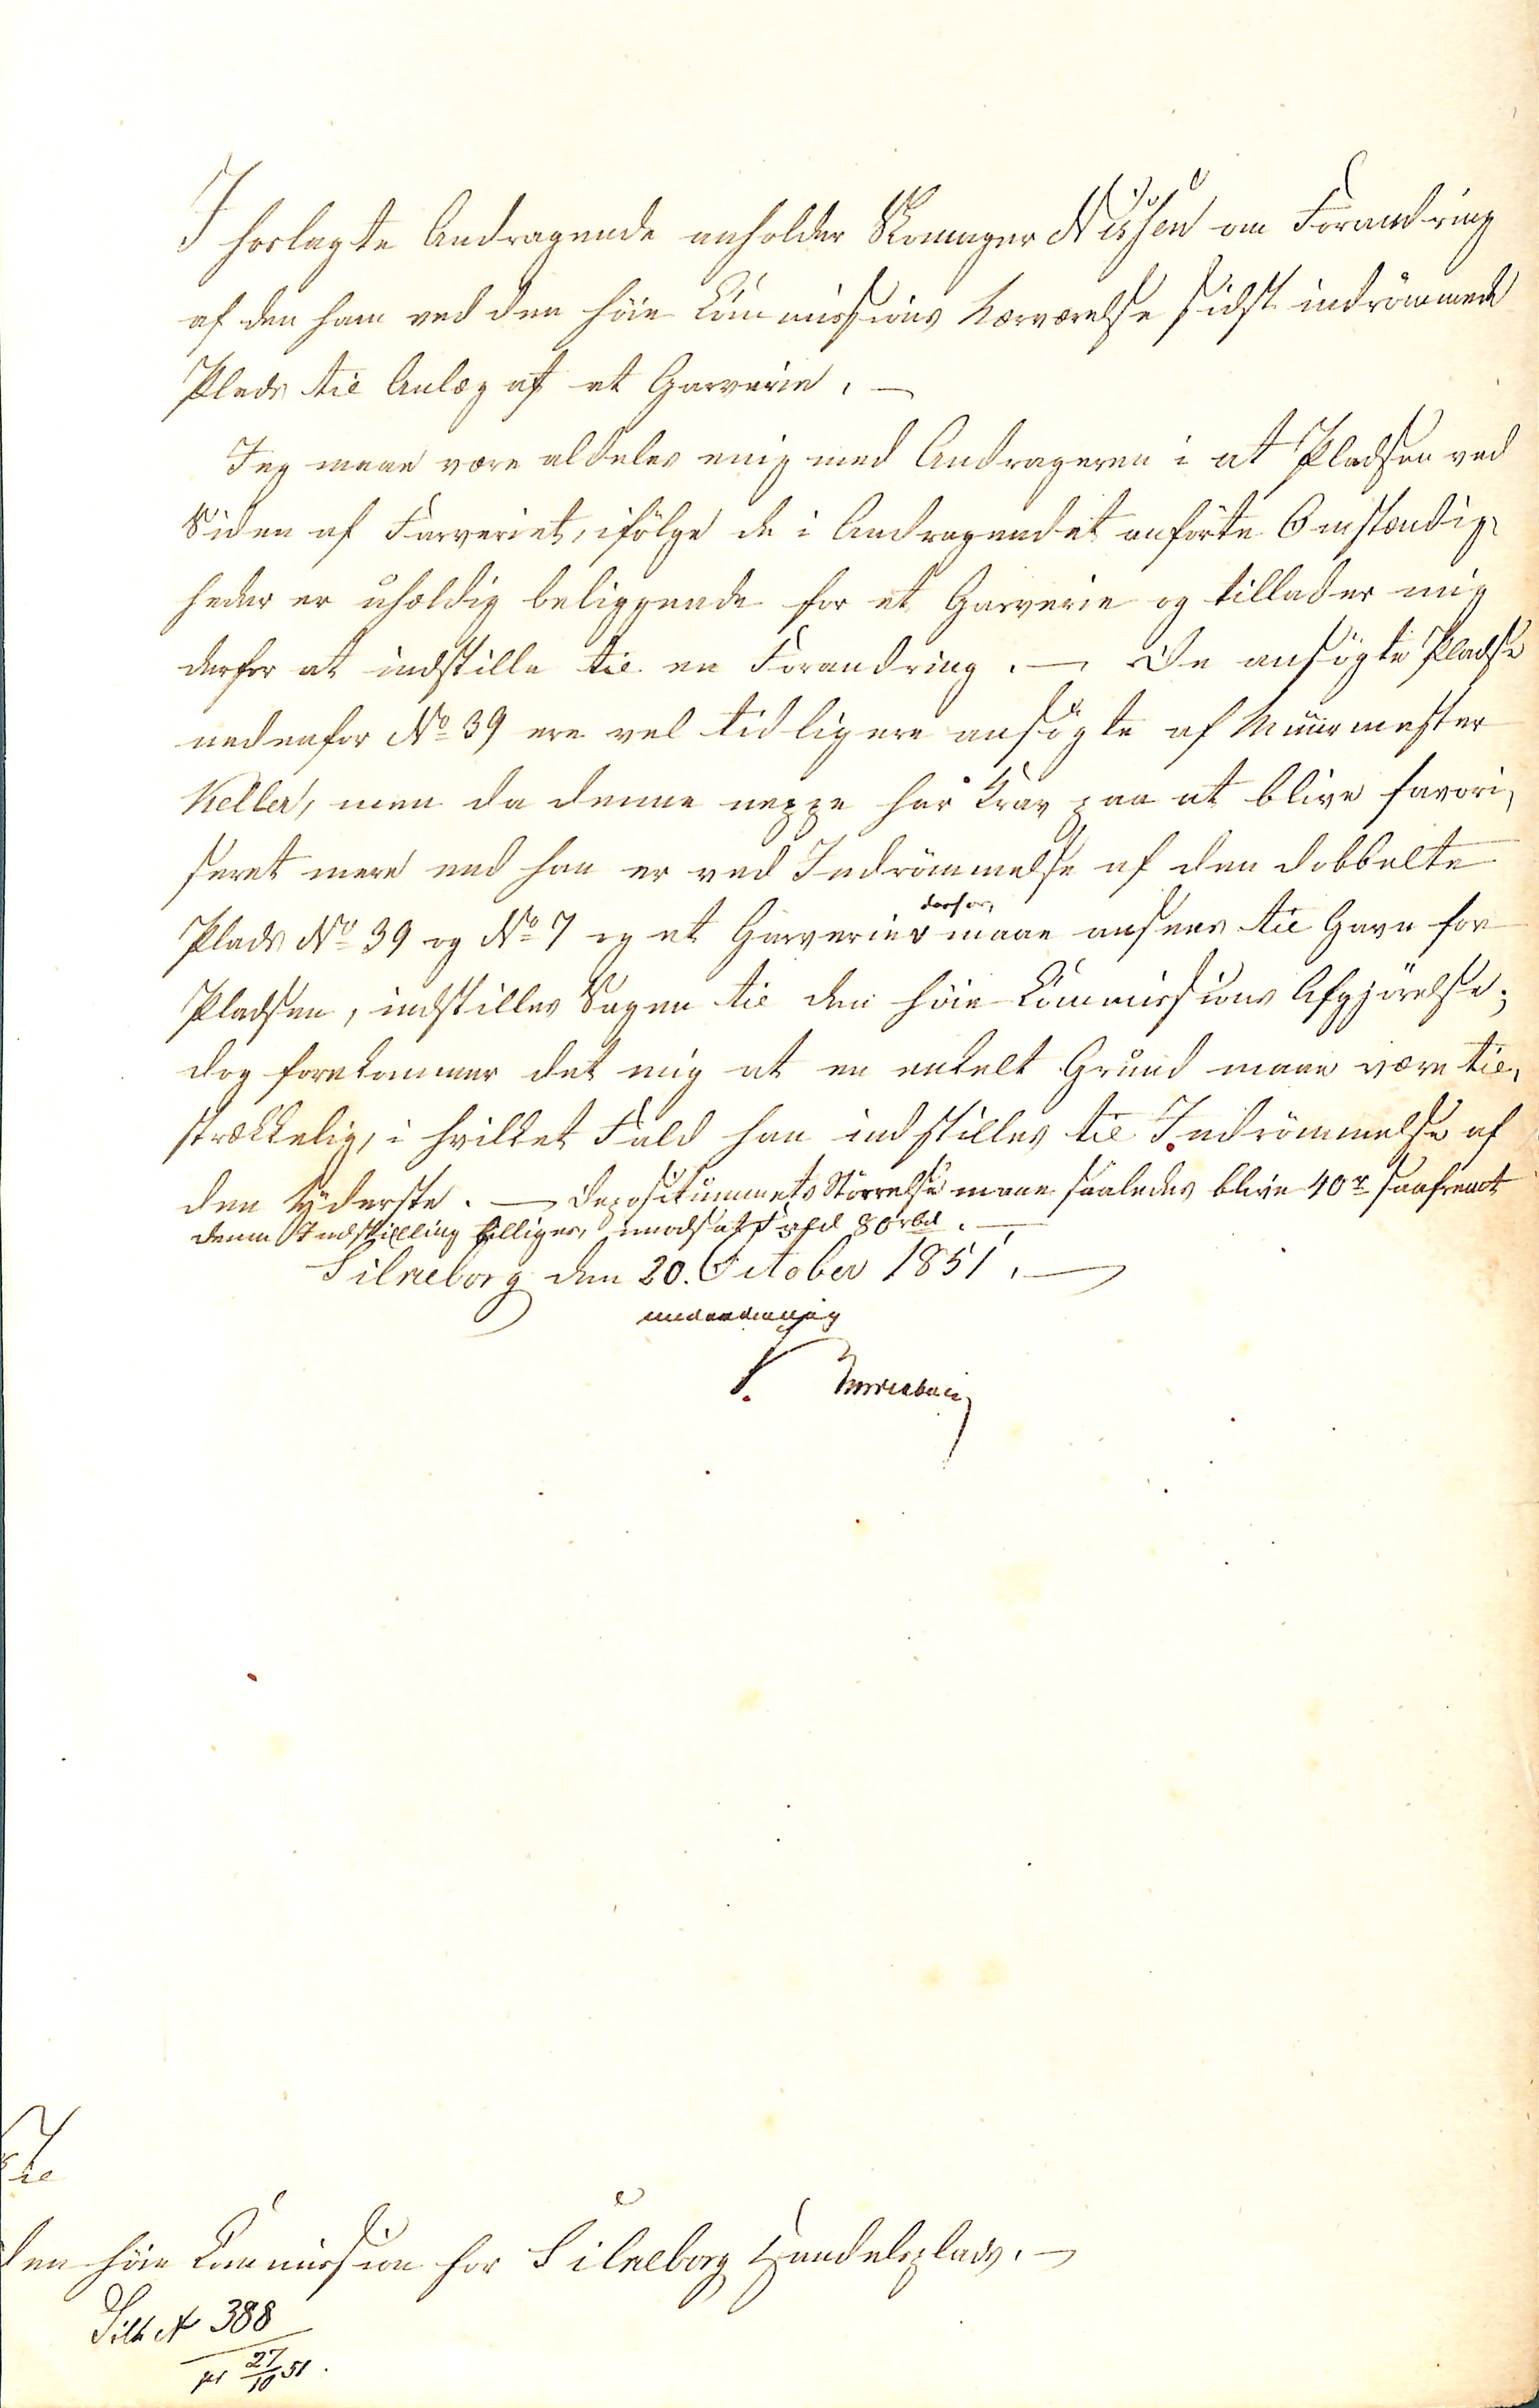 I hoslagte Andragende anholder Skomager Nissen om Forandring
af den ham ved den höie Commissions Nærværelse sidst indrömmede
Plads til Anlæg af et Garverie. —
Jeg maae være aldeles enig med Andrageren i at Pladsen ved
Siden af Farveriet, ifölge de i Andragendet anförte Omstændig-
heder er uheldig beliggende for et Garverie og tillader mig
derfor at indstille til en Forandring. — De ansögte Pladse
nedenfor No 39 ere vel tidligere ansögte af Muurmester
Keller, men da denne neppe har Krav paa at blive favori-
seret mere end han er ved Indrömmelse af den dobbelte
Plads No 39 og No 7 og et Garverie derfor, maae ansees til Gavn for
Pladsen, indstilles Sagen til den höie Commissions Afgjörelse;
dog forekommer det mig at en enkelt Grund maae være til-
strækkelig, i hvilket Fald han indstilles til Indrömmelse af
den yderste. — Depositummets Störrelse maae saaledes blive 40 r saafremt
denne Indstilling billiges, modsat Fald 80 rbd. —
Silkeborg den 20. October 1851. —
underdanig
Til
den höie Commission for Silkeborg Handelsplads. —
Silk N 388
pr 27/10 51.